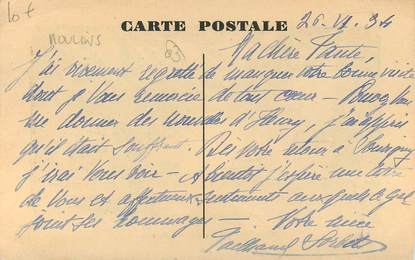 10 €
MOULINS
03
CARTE POSTALE
26. VI. 34
Ma chère Tante,
J'ai vivement regretté de manquer votre bonne visite
dont je Vous remercie de tout coeur —
me donner des nouvelles d' j'ai appris
qu'il était souffrant. Dès votre retour à
j'irai Vous voir — à bientôt j'espère
de Vous et affectueux sentiments auxquels
joint ses hommages — Votre nièce